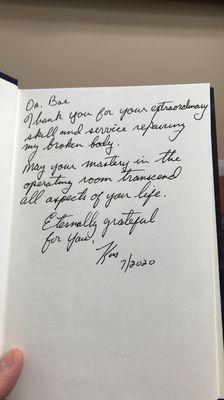 Dr. Bae
Thank you for your extraordinary
skill and service repairing
my broken body.
May your mastery in the
operating room transcend
all aspects of your life.
Eternally grateful
for you,
7/2020